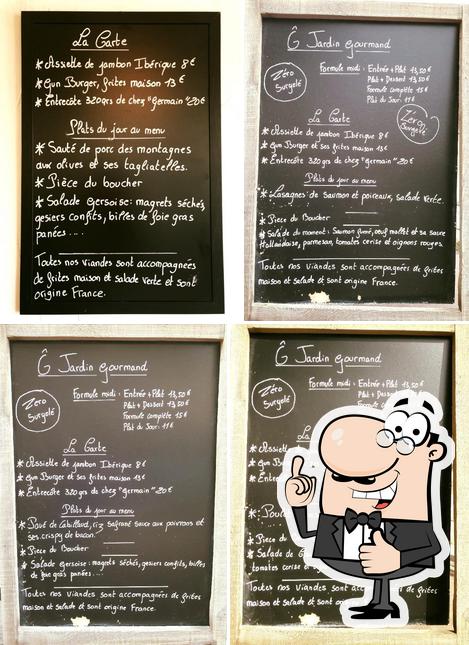 La Carte
* Assiette de jambon Ibérique 8€
* Gun Burger, frites maison 13€
* Entrecôte 320grs de chez "Germain" 20€
Plats du jour au menu
* Sauté de porc des montagnes
aux olives et ses tagliatelles.
* Pièce du boucher
* Salade Gersoise: magrets séchés,
gesiers confits, billes de foie gras
panées....
Toutes nos viandes sont accompagnées
de frites maison et salade verte et sont
origine France.
Ô Jardin Gourmand
Zéro
Surgelé
Formule midi: Entrée + Plat 13,50€
Plat + Dessert 13,50€
Formule complète 15€
Plat du Jour: 11€
Zéro
Surgelé
La Carte
* Assiette de jambon Ibérique 8€
* Gun Burger et ses frites maison 13€
* Entrecôte 320 grs de chez "Germain" 20€
Plats du jour au menu
* Lasagnes de Saumon et poireaux, salade verte.
* Pièce du Boucher
* Salade du moment: Saumon fumé, oeuf mollet et sa sauce
Hollandaise, parmesan, tomates cerise et oignons rouges.
Toutes nos viandes sont accompagnées de frites
maison et salade et sont origine France.
Ô Jardin Gourmand
Zéro
Surgelé
Formule midi: Entrée + Plat 13,50€
Plat + Dessert 13,50€
Formule complète 15€
Plat du Jour: 11€
La Carte
* Assiette de jambon Ibérique 8€
* Gun Burger et ses frites maison 13€
* Entrecôte 320 grs de chez "Germain" 20€
Plats du jour au menu
* Pavé de Cabillaud, riz Safrané sauce aux poivrons et
ses crispy de bacon.
* Pièce du Boucher
* Salade Gersoise: magrets séchés, gesiers confits, billes
de foie gras panées...
Toutes nos viandes sont accompagnées de frites
maison et salade et sont origine France.
Ô Jardin Gourmand
Zéro
Surgelé
Formule midi: Entrée + Plat 13,50€
Plat + Dessert 13,50€
Formule
* Assiette
* Gun Bur
* Entrecô
* Pièce
* Salade de
tomates cerise
Toutes nos viandes sont frites
maison et salade et sont